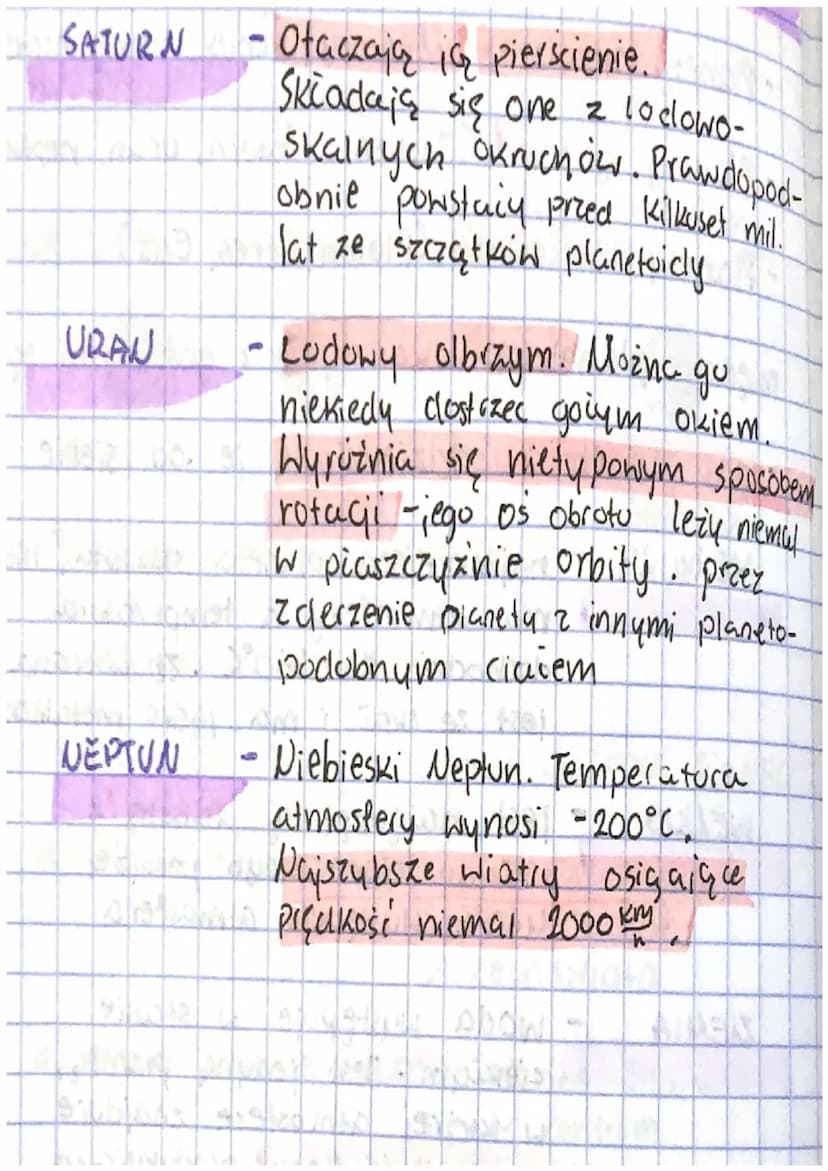 SATURN - Otaczają ją pierścienie.
Składają się one z lodowo-
skalnych okruchów. Prawdopod-
obnie powstały przed kilkuset mil.
lat ze szczątków planetoidy
URAN - Lodowy olbrzym. Można go
niekiedy dostrzec gołym okiem.
Wyróżnia się nietypowym sposobem
rotacji - jego oś obrotu leży niemal
w płaszczyźnie orbity. przez
zderzenie planety z innymi planeto-
podobnym ciałem
NEPTUN - Niebieski Neptun. Temperatura
atmosfery wynosi -200°C.
Najszybsze wiatry osiągające
prędkość niemal 2000 km/h.